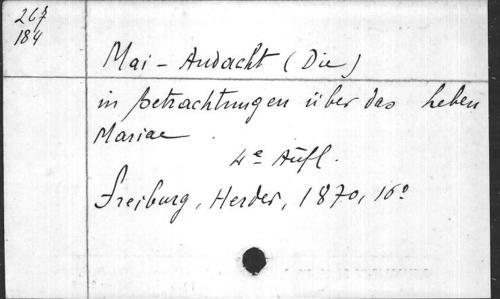 267
184
Mai-Andacht (Die)
in Betrachtungen über das Leben
Mariae.
4e Aufl.
Freiburg, Herder, 1870, 16o